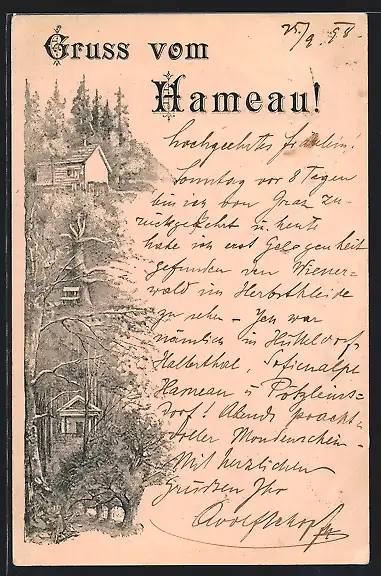 Gruss vom
Hameau!
25/9. 98.
Hochgeehrtes Fräulein!
Sonntag vor 8 Tagen
bin ich von Graz zu-
rückgekehrt u. heute
habe ich erst Gelegenheit
gefunden den Wiener-
wald im Herbstkleide
zu sehen – Ich war
nämlich in Hütteldorf,
Halterthal, Sofienalpe
Hameau u. Pötzleins-
dorf! Abends pracht-
voller Mondenschein.
Mit herzlichen
Grüssen Ihr